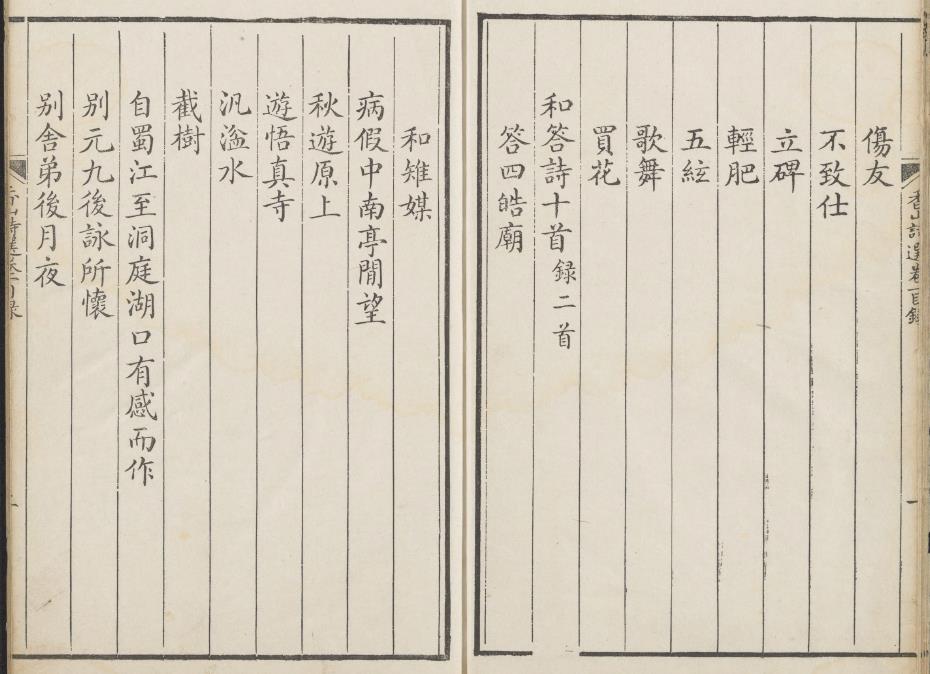 香山詩選卷一目錄
一
傷友
不致仕
立碑
輕肥
五絃
歌舞
買花
和答詩十首録二首
答四皓廟
和雉媒
病假中南亭閒望
秋遊原上
遊悟真寺
汎湓水
截樹
自蜀江至洞庭湖口有感而作
别元九後詠所懷
别舍弟後月夜